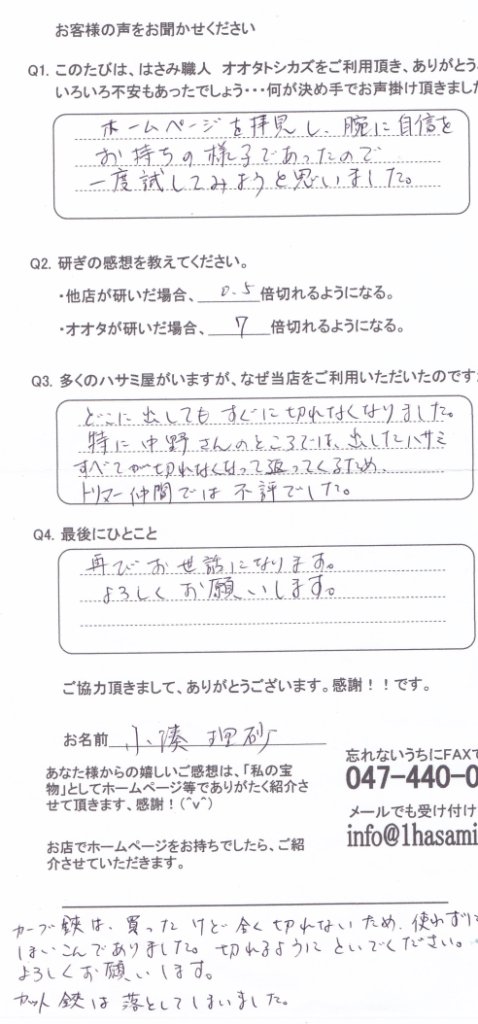 お客様の声をお聞かせください
Q1. このたびは、はさみ職人 オオタトシカズをご利用頂き、ありがとう
いろいろ不安もあったでしょう・・・何が決め手でお声掛け頂きました
ホームページを拝見し、腕に自信を
お持ちの様子であったので
一度試してみようと思いました。
Q2. 研ぎの感想を教えてください。
・他店が研いだ場合、 0.5 倍切れるようになる。
・オオタが研いだ場合、 7 倍切れるようになる。
Q3. 多くのハサミ屋がいますが、なぜ当店をご利用いただいたのです
どこに出してもすぐに切れなくなりました。
特に中野さんのところでは、出したハサミ
すべてが切れなくなって返ってくるため、
トリマー仲間では不評でした。
Q4. 最後にひとこと
再びお世話になります。
よろしくお願いします。
ご協力頂きまして、ありがとうございます。感謝！！です。
お名前 小湊 理砂
あなた様からの嬉しいご感想は、「私の宝
物」としてホームページ等でありがたく紹介さ
せて頂きます、感謝！(^v^)
お店でホームページをお持ちでしたら、ご紹
介させていただきます。
忘れないうちにFAXで
047-440-0
メールでも受け付け
info@1hasami
カーブ鋏は、買ったけど全く切れないため、使わずに
しまいこんでありました。切れるようにといでください。
よろしくお願いします。
カット鋏は落としてしまいました。